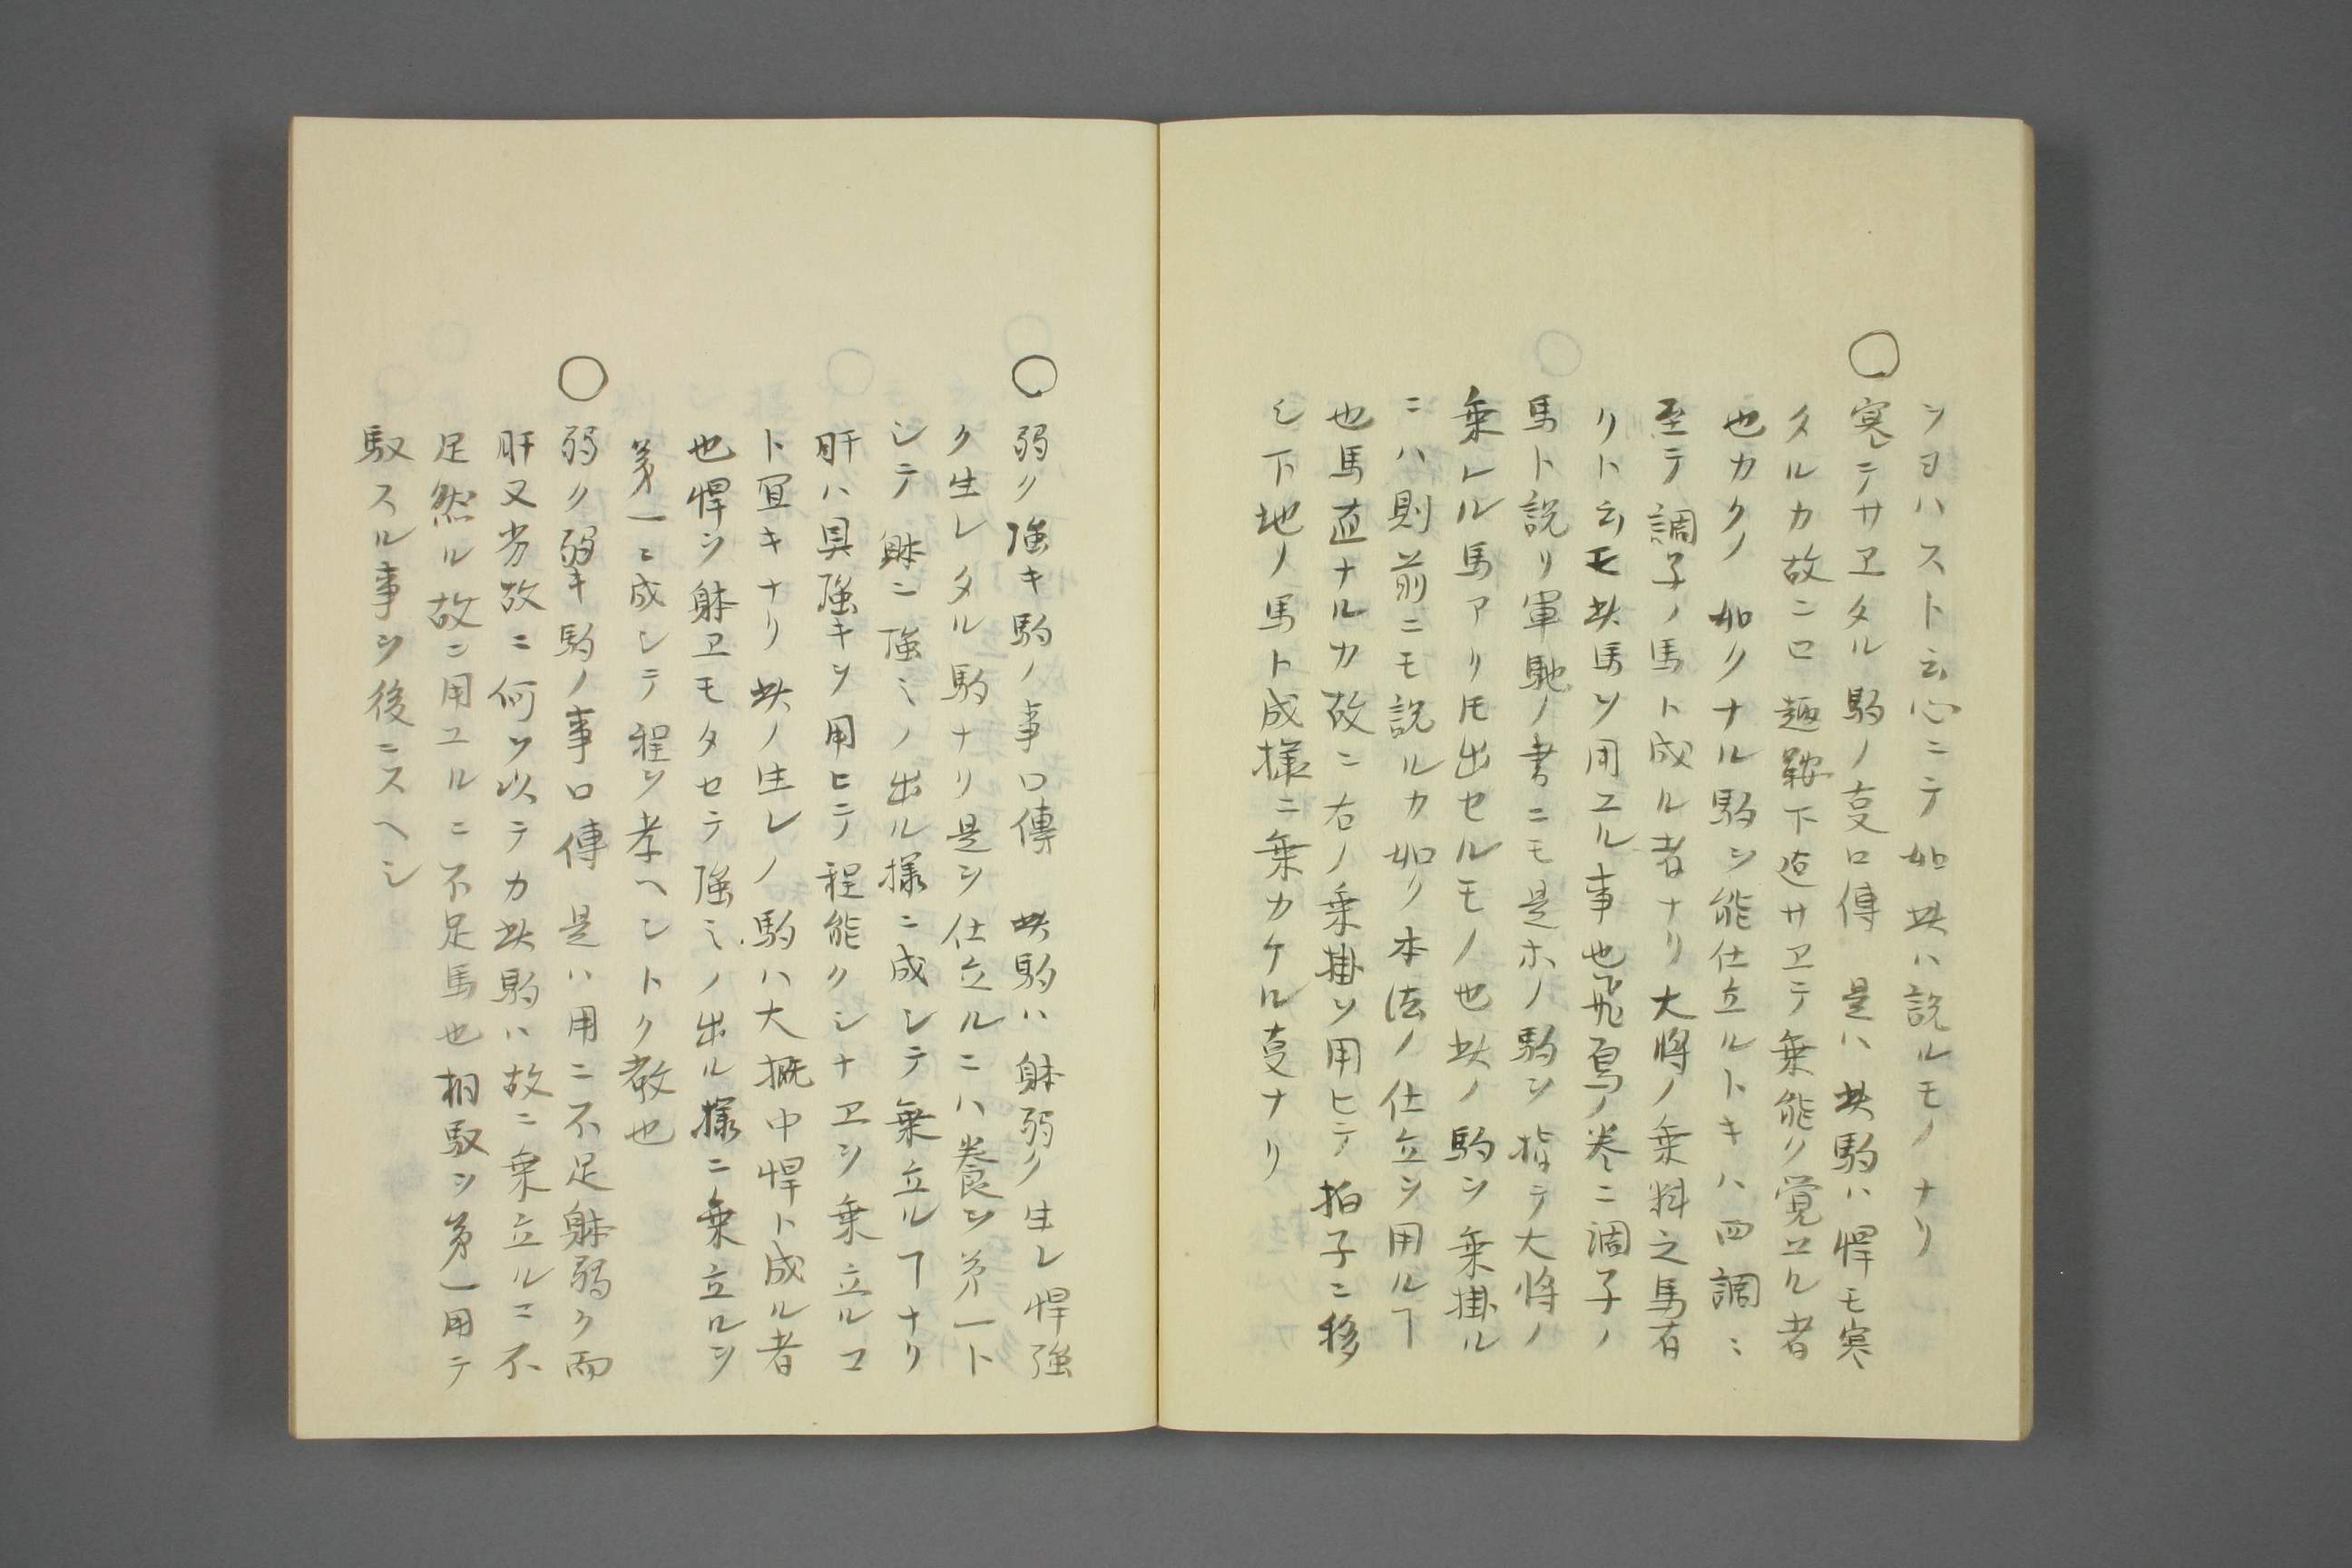 ンヨハスト云心ニテ如此ハ説ルモノナリ
○寒テサヱタル駒ノ叓口傳　是ハ此駒ハ悍モ寒
タルカ故ニロ趣鞍下迠サヱテ乗能ク覚ユル者
也カクノ如クナル駒ヲ能仕立ルトキハ四調ニ
至テ調子ノ馬ト成ル者ナリ大将ノ乗料之馬有
リト云モ此馬ヲ用ユル事也飛鳥ノ巻ニ調子ノ
馬ト説リ軍馳ノ書ニモ是ホノ駒ヲ指テ大将ノ
乗レル馬アリ𪜈出セルモノ也此ノ駒ヲ乗掛ル
ニハ則前ニモ説ルカ如ク本法ノ仕立ヲ用ルヿ
也馬直ナルカ故ニ右ノ乗掛ヲ用ヒテ拍子ニ移
シ下地ノ馬ト成様ニ乗カケル叓ナリ
○弱ク強キ駒ノ事口傳　此駒ハ躰弱ク生レ悍強
ク生レタル駒ナリ是ヲ仕立ルニハ養ヲ第一ト
シテ躰ニ強ミノ出ル様ニ成シテ乗立ルヿナリ
肝ハ具強キヲ用ヒテ程能クシナヱヲ乗立ルコ
ト冝キナリ此ノ生レノ駒ハ大概中悍ト成ル者
也悍ヲ躰ヱモタセテ強ミノ出ル様ニ乗立ルヲ
第一ニ成シテ程ヲ考ヘシトク教也
○弱ク弱キ駒ノ事口傳　是ハ用ニ不足躰弱ク而
肝又労故ニ何ヲ以テカ此駒ハ故ニ乗立ルニ不
足然ル故ニ用ユルニ不足馬也相馭ヲ第一用テ
馭スル事ヲ後ニスヘシ